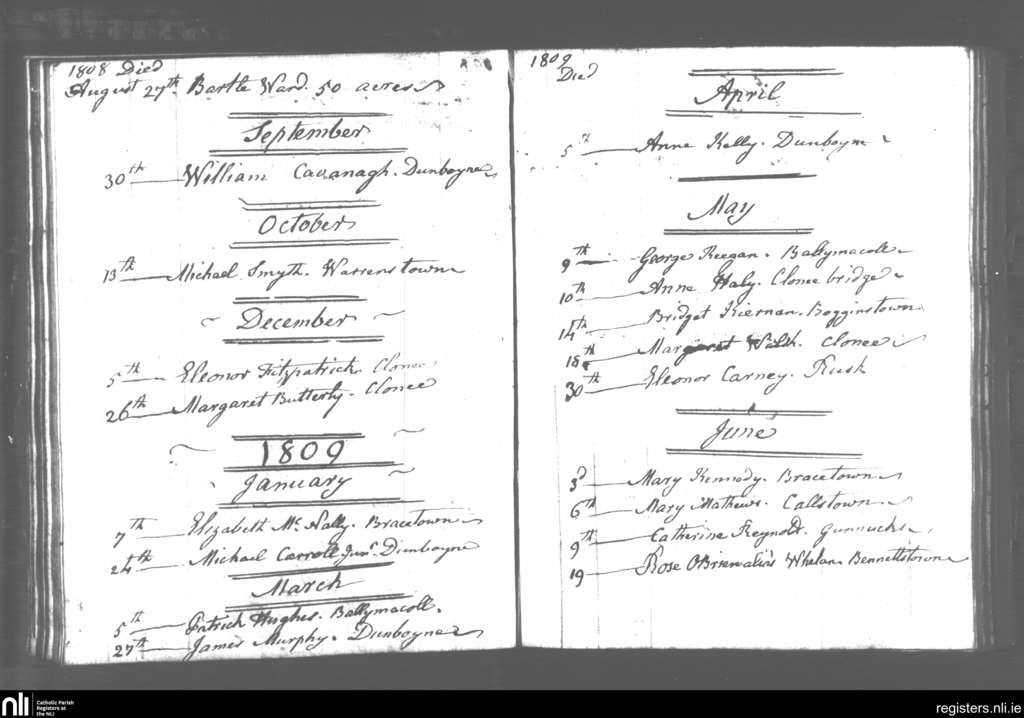 1808 Died
August 27th. Bartle Ward. 50 acres
September
30th William Cavanagh. Dunboyne
October
13th Michael Smyth. Warrenstown
December
5th Eleonor Fitzpatrick. Clonee
26th Margaret Butterly. Clonee
1809
January
7th Elizabeth Mc. Nally. Bracetown
24th Michael Carroll Junr. Dunboyne
March
5th Patrick Hughes. Ballymacoll.
27th James Murphy. Dunboyne
1809
Died
April
5th Anne Kelly. Dunboyne
May
9th George Keegan. Ballymacoll
10th Anne Haly. Clonee bridge
14th Bridget Kiernan. Bogginstown
18th Margaret Clonee
30th Eleonor Carney. Rusk
June
3d Mary Kennedy. Bracetown
6th Mary Mathews. Callstown
9th Catherine Reynold. Gunnucks
19 Rose O'Brien alias Whelan Bennettstown
nli Catholic Parish
Registers at
the NLI
registers.nli.ie